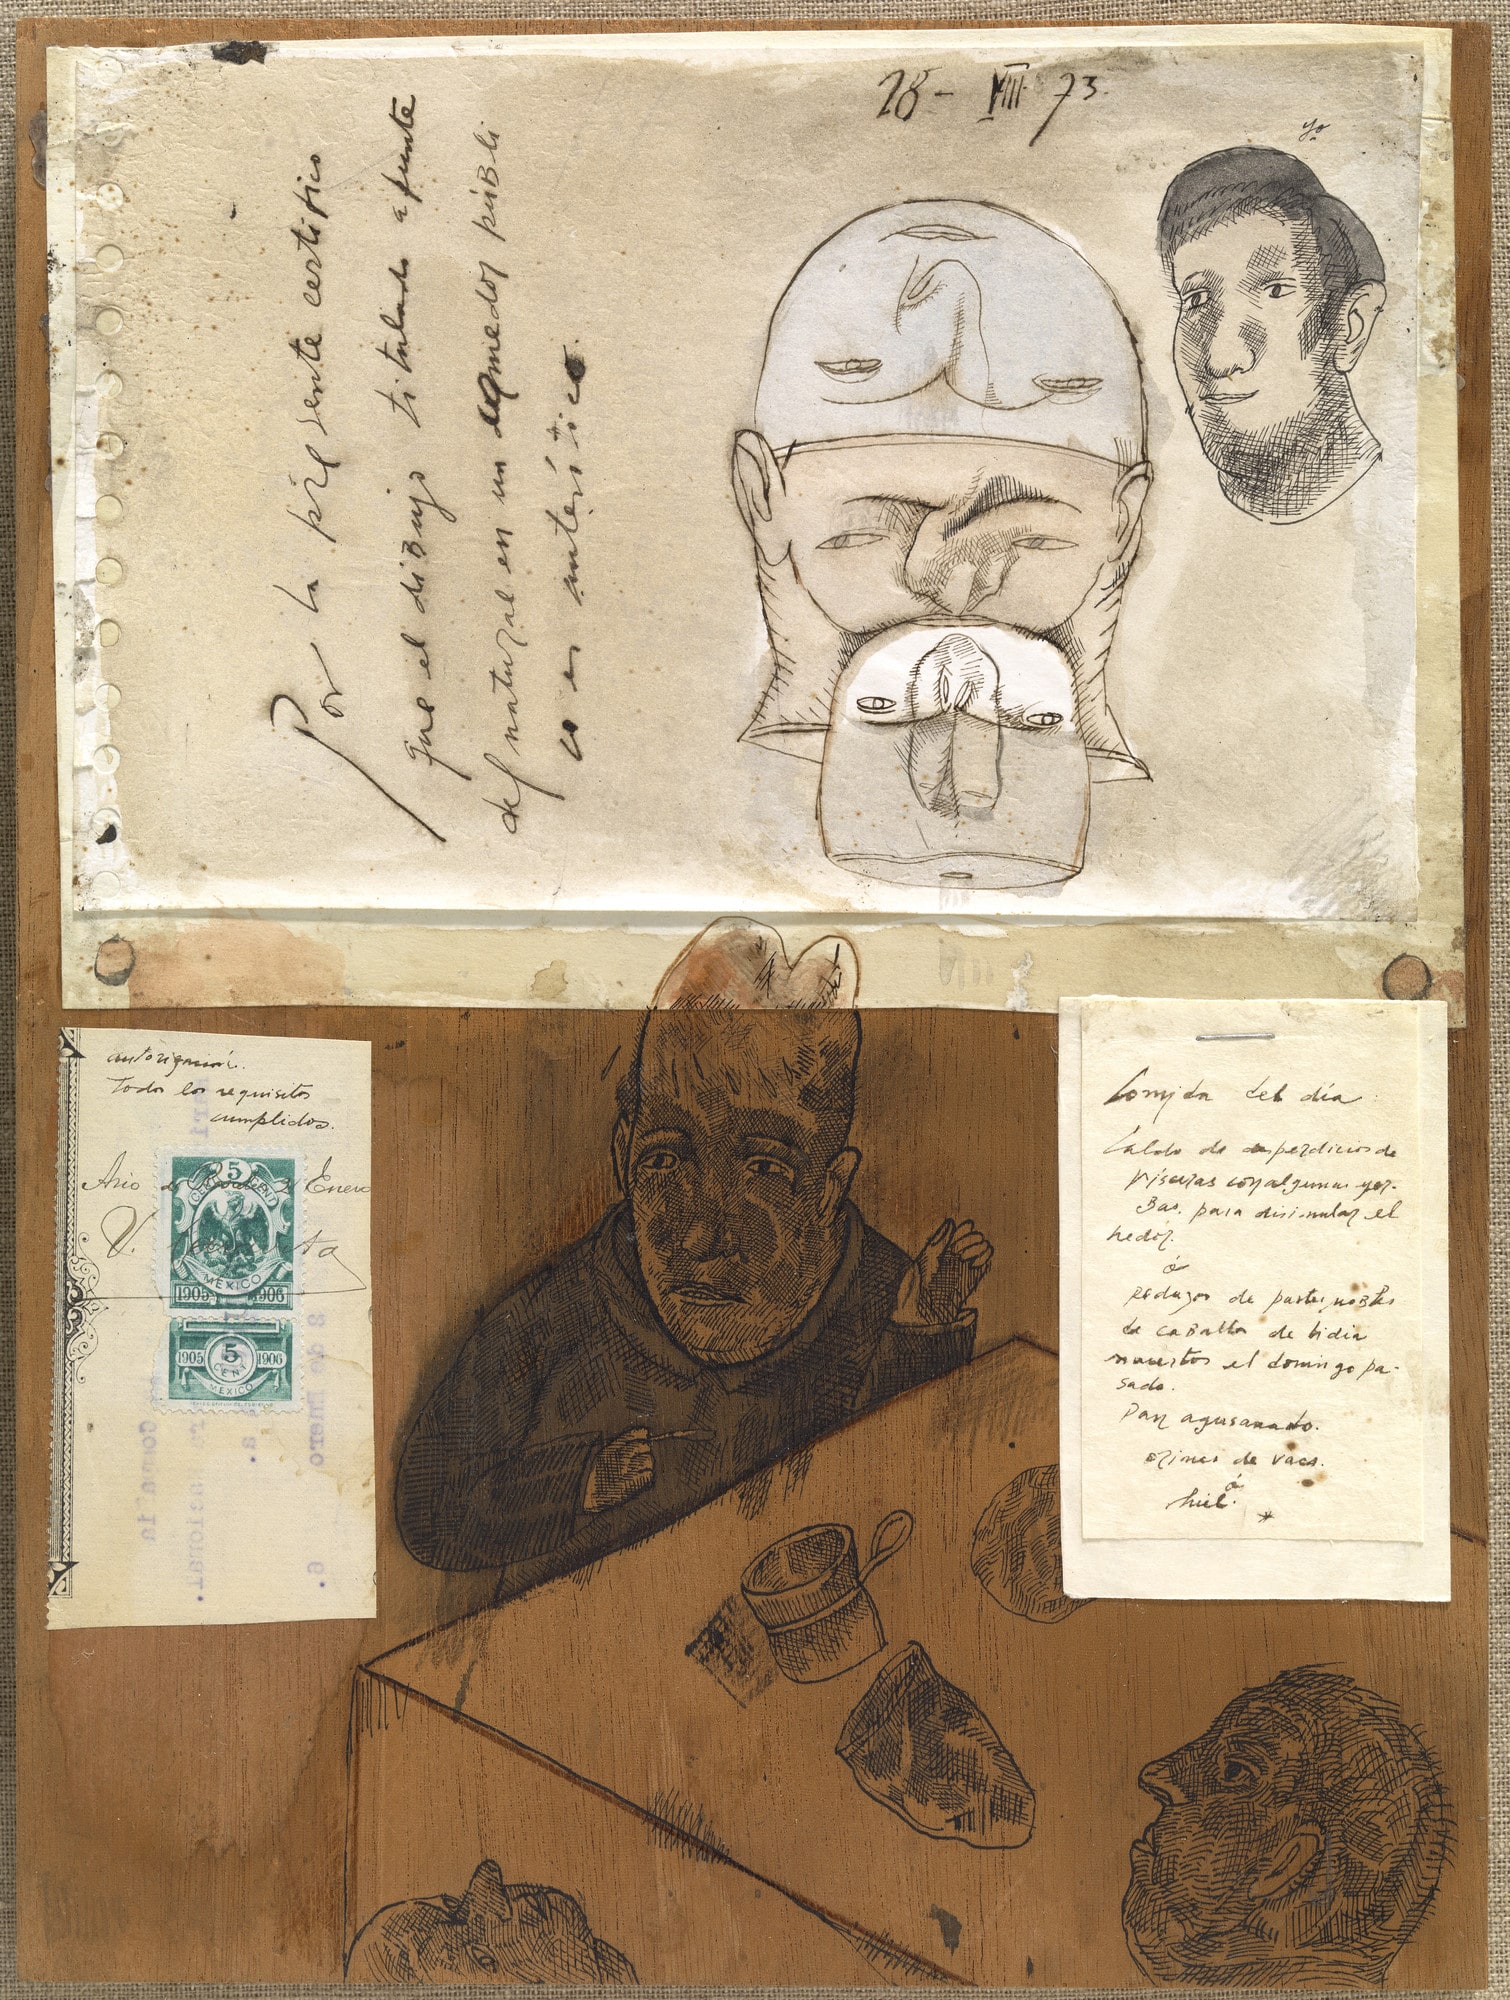 28 - VIII 73.
yo
Por la presente certifico
que el dibujo titulado apunte
del natural en un comedor públi
co es auténtico.
autorización.
Todos los requisitos
cumplidos.
Año de 2 Enero
V.
5
MEXICO
1905 1906
1905 5 1906
CENT
MEXICO
Comida del día
Caldo de desperdicios de
vísceras con algunas yer-
bas. para disimular el
hedor.
ó
Pedazos de partes nobles
de caballo de lidia
muertos el domingo pa-
sado.
Pan agusanado.
orines de vaca.
ó
hiel.